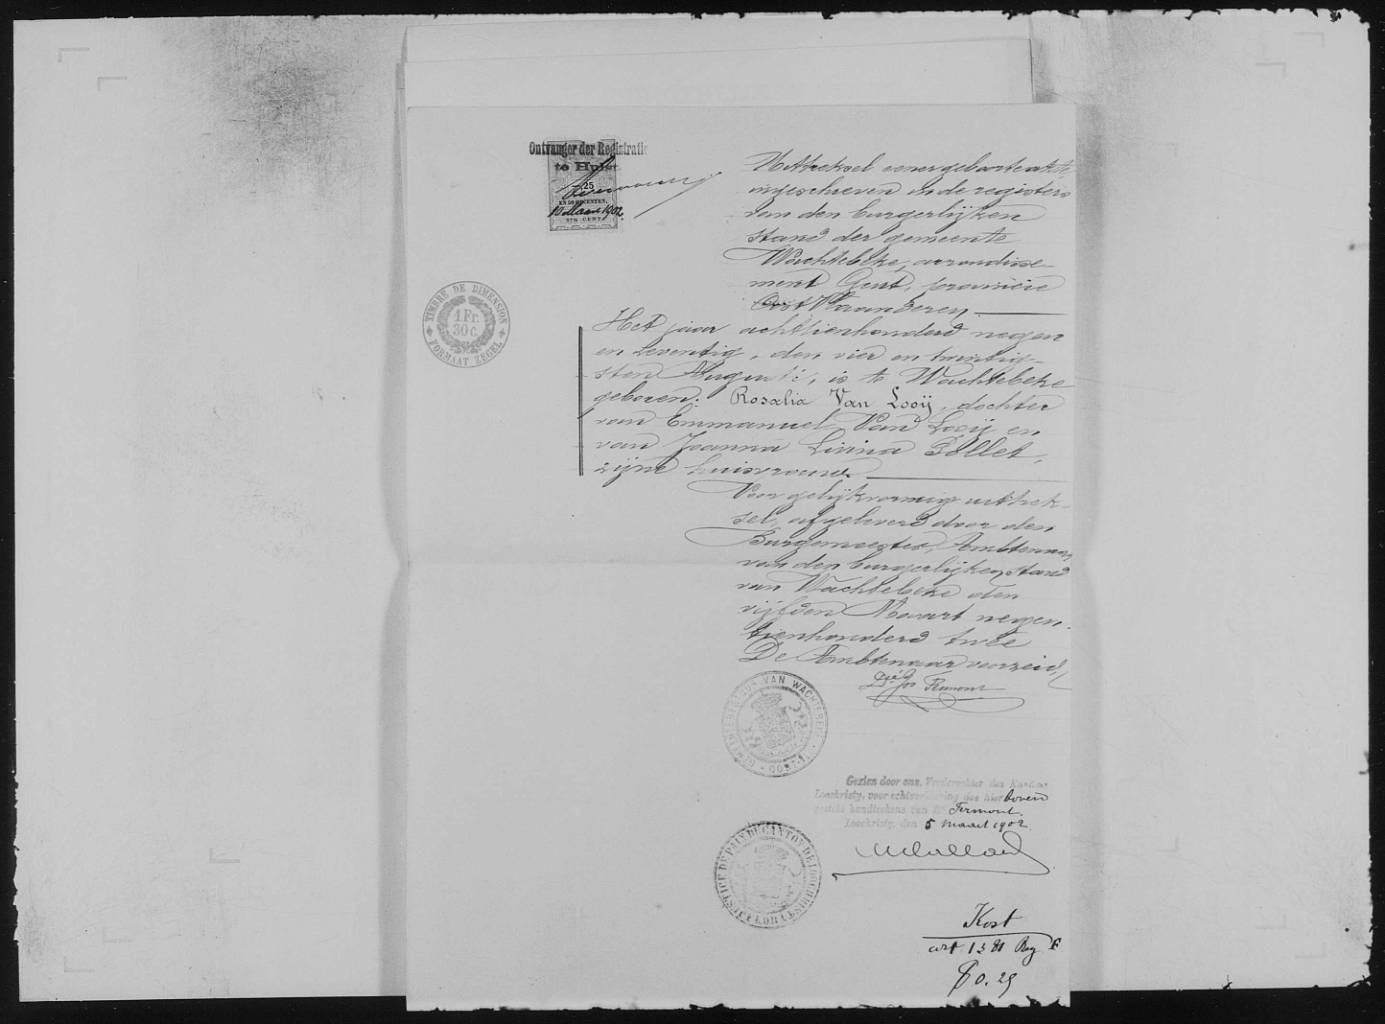 Ontvanger der Registratie
te Hulst
25
EN 50 OPCENTEN,
37½ CENT
10 Maart 1902
TIMBRE DE DIMENSION
1 Fr.
30 c.
FORMAAT ZEGEL
Uittreksel eener geboorteakte
ingeschreven in de registers
van den burgerlijken
stand der gemeente
Wachtebeke, arrondisse-
ment Gent, provincie
Oost Vlaanderen.
Het jaar achttienhonderd negen
en zeventig, den vier en twintig-
sten Augusti, is te Wachtebeke
geboren: Rosalia Van Looij, dochter
van Emmanuel Van Looij en
van Joanna Livina Pollet,
zijne huisvrouw.
Voor gelijkvormig uittrek-
sel, afgeleverd door den
Burgemeester, Ambtenaar
van den burgerlijken stand
van Wachtebeke den
vijfden Maart negen-
tienhonderd twee
De Ambtenaar voorzeid,
Fermont
GEMEENTEBESTUUR VAN WACHTEBEKE
OOST-VL.
Gezien door ons, Vrederechter des Kantons
Loochristy, voor echtverklaring des hierboven
gesteld handteekens van Fermont.
Loochristy, den 5 maart 1902.
JUSTICE DE PAIX DU CANTON DE LOOCHRISTI
Kost
art 1381 Reg F
ƒ 0.25